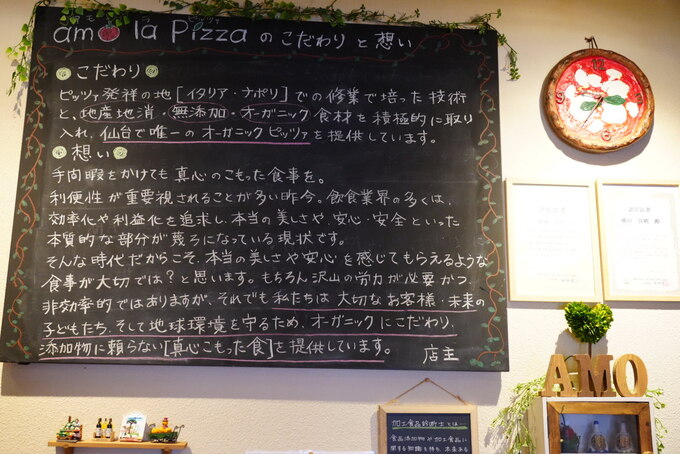 amo la Pizza のこだわりと想い
こだわり
ピッツァ発祥の地[イタリア・ナポリ]での修業で培った技術
と、地産地消・無添加・オーガニック食材を積極的に取り
入れ、仙台で唯一のオーガニックピッツァを提供しています。
想い
手間暇をかけても真心のこもった食事を。
利便性が重要視されることが多い昨今。飲食業界の多くは、
効率化や利益化を追求し、本当の美しさや、安心・安全といった
本質的な部分が蔑ろになっている現状です。
そんな時代だからこそ、本当の美しさや安心を感じてもらえるような
食事が大切では?と思います。もちろん沢山の労力が必要かつ
非効率的ではありますが、それでも私たちは大切なお客様・未来の
子どもたち、そして地球環境を守るため、オーガニックにこだわり、
添加物に頼らない[真心こもった食]を提供しています。
店主
AMO
加工食品診断士とは…
食品添加物や加工食品に
関する知識を持ち、